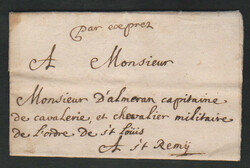 par exprez
A Monsieur
Monsieur D'almeran capitaine
de cavalerie, et chevalier militaire
de L'ordre de st Loüis
A st Remÿ